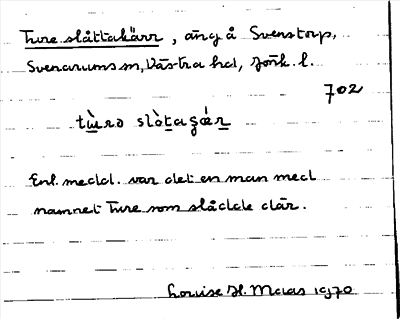 Ture slåttakärr, äng å Svenstorp,
Svenarums sn, Västra hd, Jönk. l.
702
tùrə slòtaʂár
Enl. medd. var det en man med
namnet Ture som slådde där.
Louise H. Maas 1970